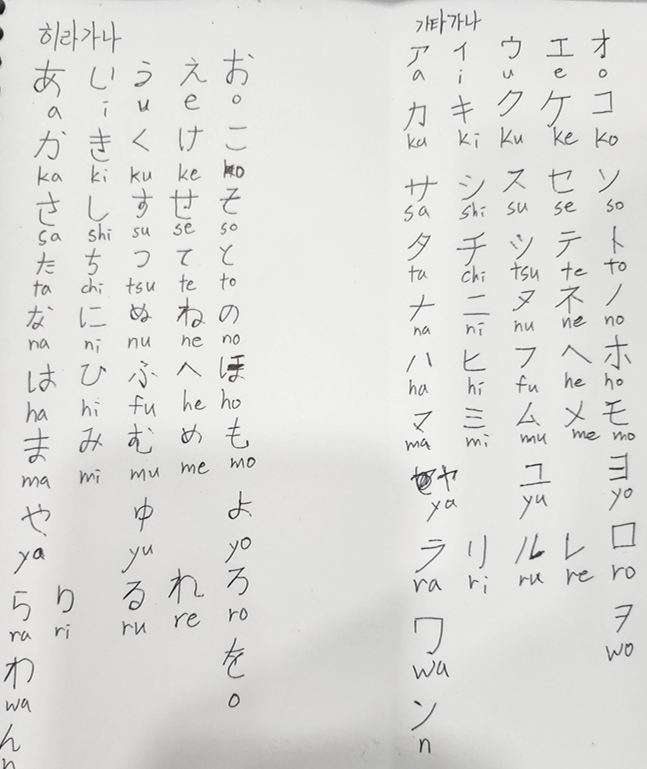 히라가나
あ い う え お
a i u e o
か き く け こ
ka ki ku ke ko
さ し す せ そ
sa shi su se so
た ち つ て と
ta chi tsu te to
な に ぬ ね の
na ni nu ne no
は ひ ふ へ ほ
ha hi fu he ho
ま み む め も
ma mi mu me mo
や ゆ よ
ya yu yo
ら り る れ ろ
ra ri ru re ro
わ を
wa o
ん
n
가타가나
ア イ ウ エ オ
a i u e o
カ キ ク ケ コ
ka ki ku ke ko
サ シ ス セ ソ
sa shi su se so
タ チ ツ テ ト
ta chi tsu te to
ナ ニ ヌ ネ ノ
na ni nu ne no
ハ ヒ フ ヘ ホ
ha hi fu he ho
マ ミ ム メ モ
ma mi mu me mo
ヤ ユ ヨ
ya yu yo
ラ リ ル レ ロ
ra ri ru re ro
ワ ヲ
wa wo
ン
n